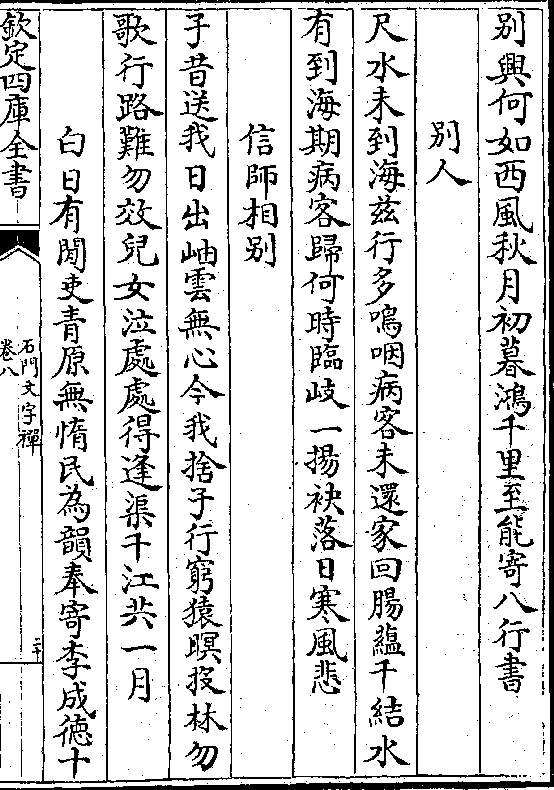 别興何如西風秋月初暮鴻千里至能寄八行書
别人
尺水未到海兹行多嗚咽病客未還家回腸蘊千結水
有到海期病客歸何時臨岐一揚袂落日寒風悲
信師相别
子昔送我日出岫雲無心今我捨子行窮猿暝投林勿
歌行路難勿效兒女泣處處得逢渠千江共一月
白日有閒吏青原無惰民為韻奉寄李成德十
欽定四庫全書
石門文字禪
卷八
二十